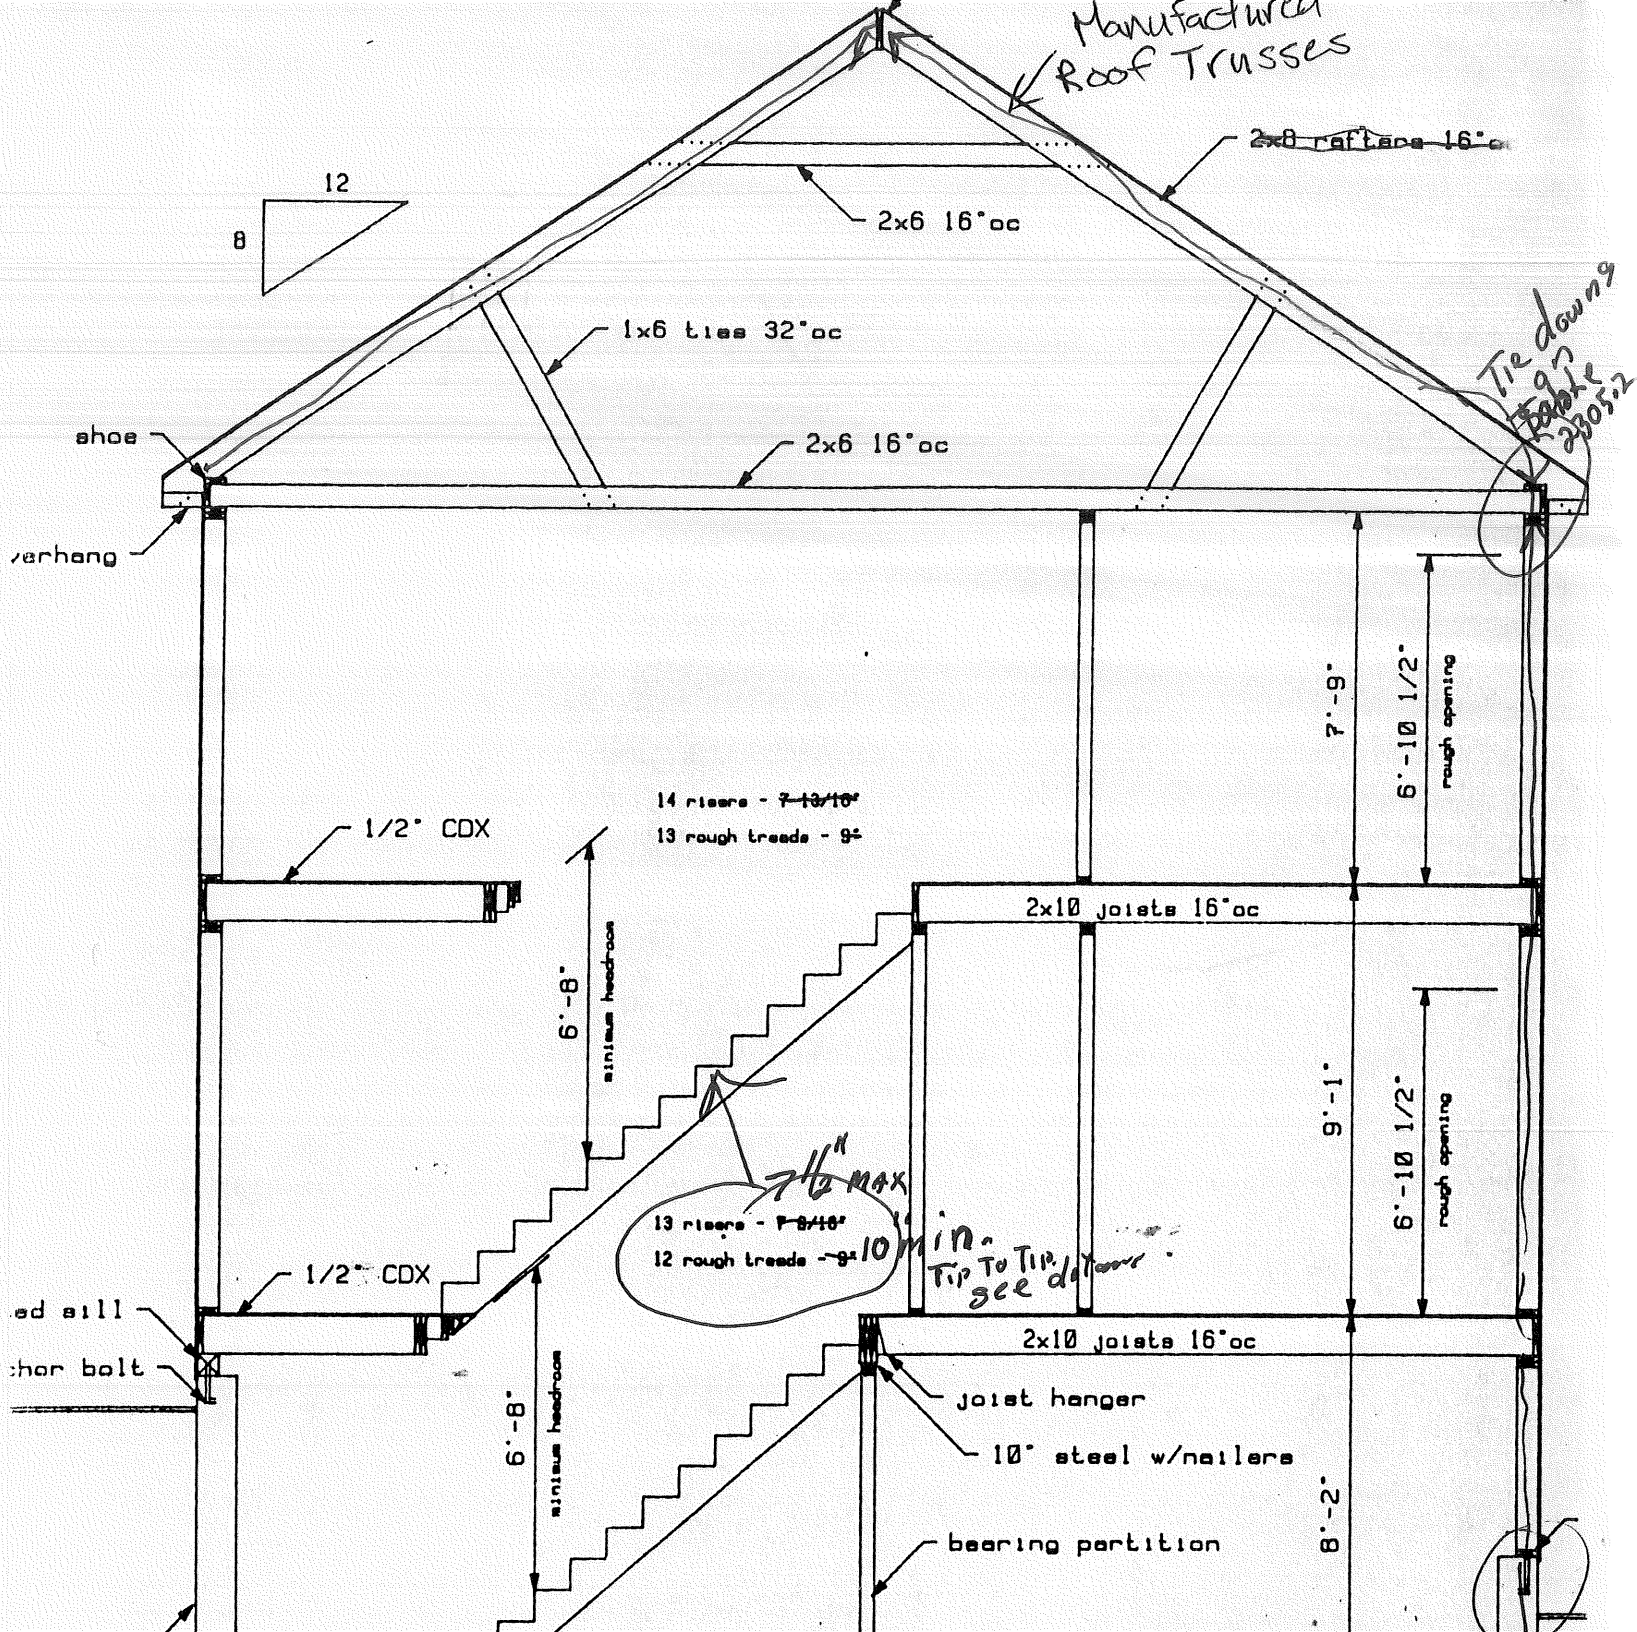 Manufactured
Roof Trusses
2x8 rafters 16"o
12
8
2x6 16"oc
1x6 ties 32"oc
Tie downs
Table
2305.2
shoe
2x6 16"oc
verhang
7'-9"
6'-10 1/2"
rough opening
14 risers - 7 13/16"
13 rough treads - 9"
1/2" CDX
2x10 joists 16"oc
6'-8"
minimum headroom
9'-1"
6'-10 1/2"
rough opening
7 1/2" MAX
13 risers - 7 9/16"
12 rough treads - 9" 10" min.
Tip To Tip
see
1/2" CDX
ed sill
2x10 joists 16"oc
chor bolt
joist hanger
6'-8"
minimum headroom
10" steel w/nailers
8'-2"
bearing partition